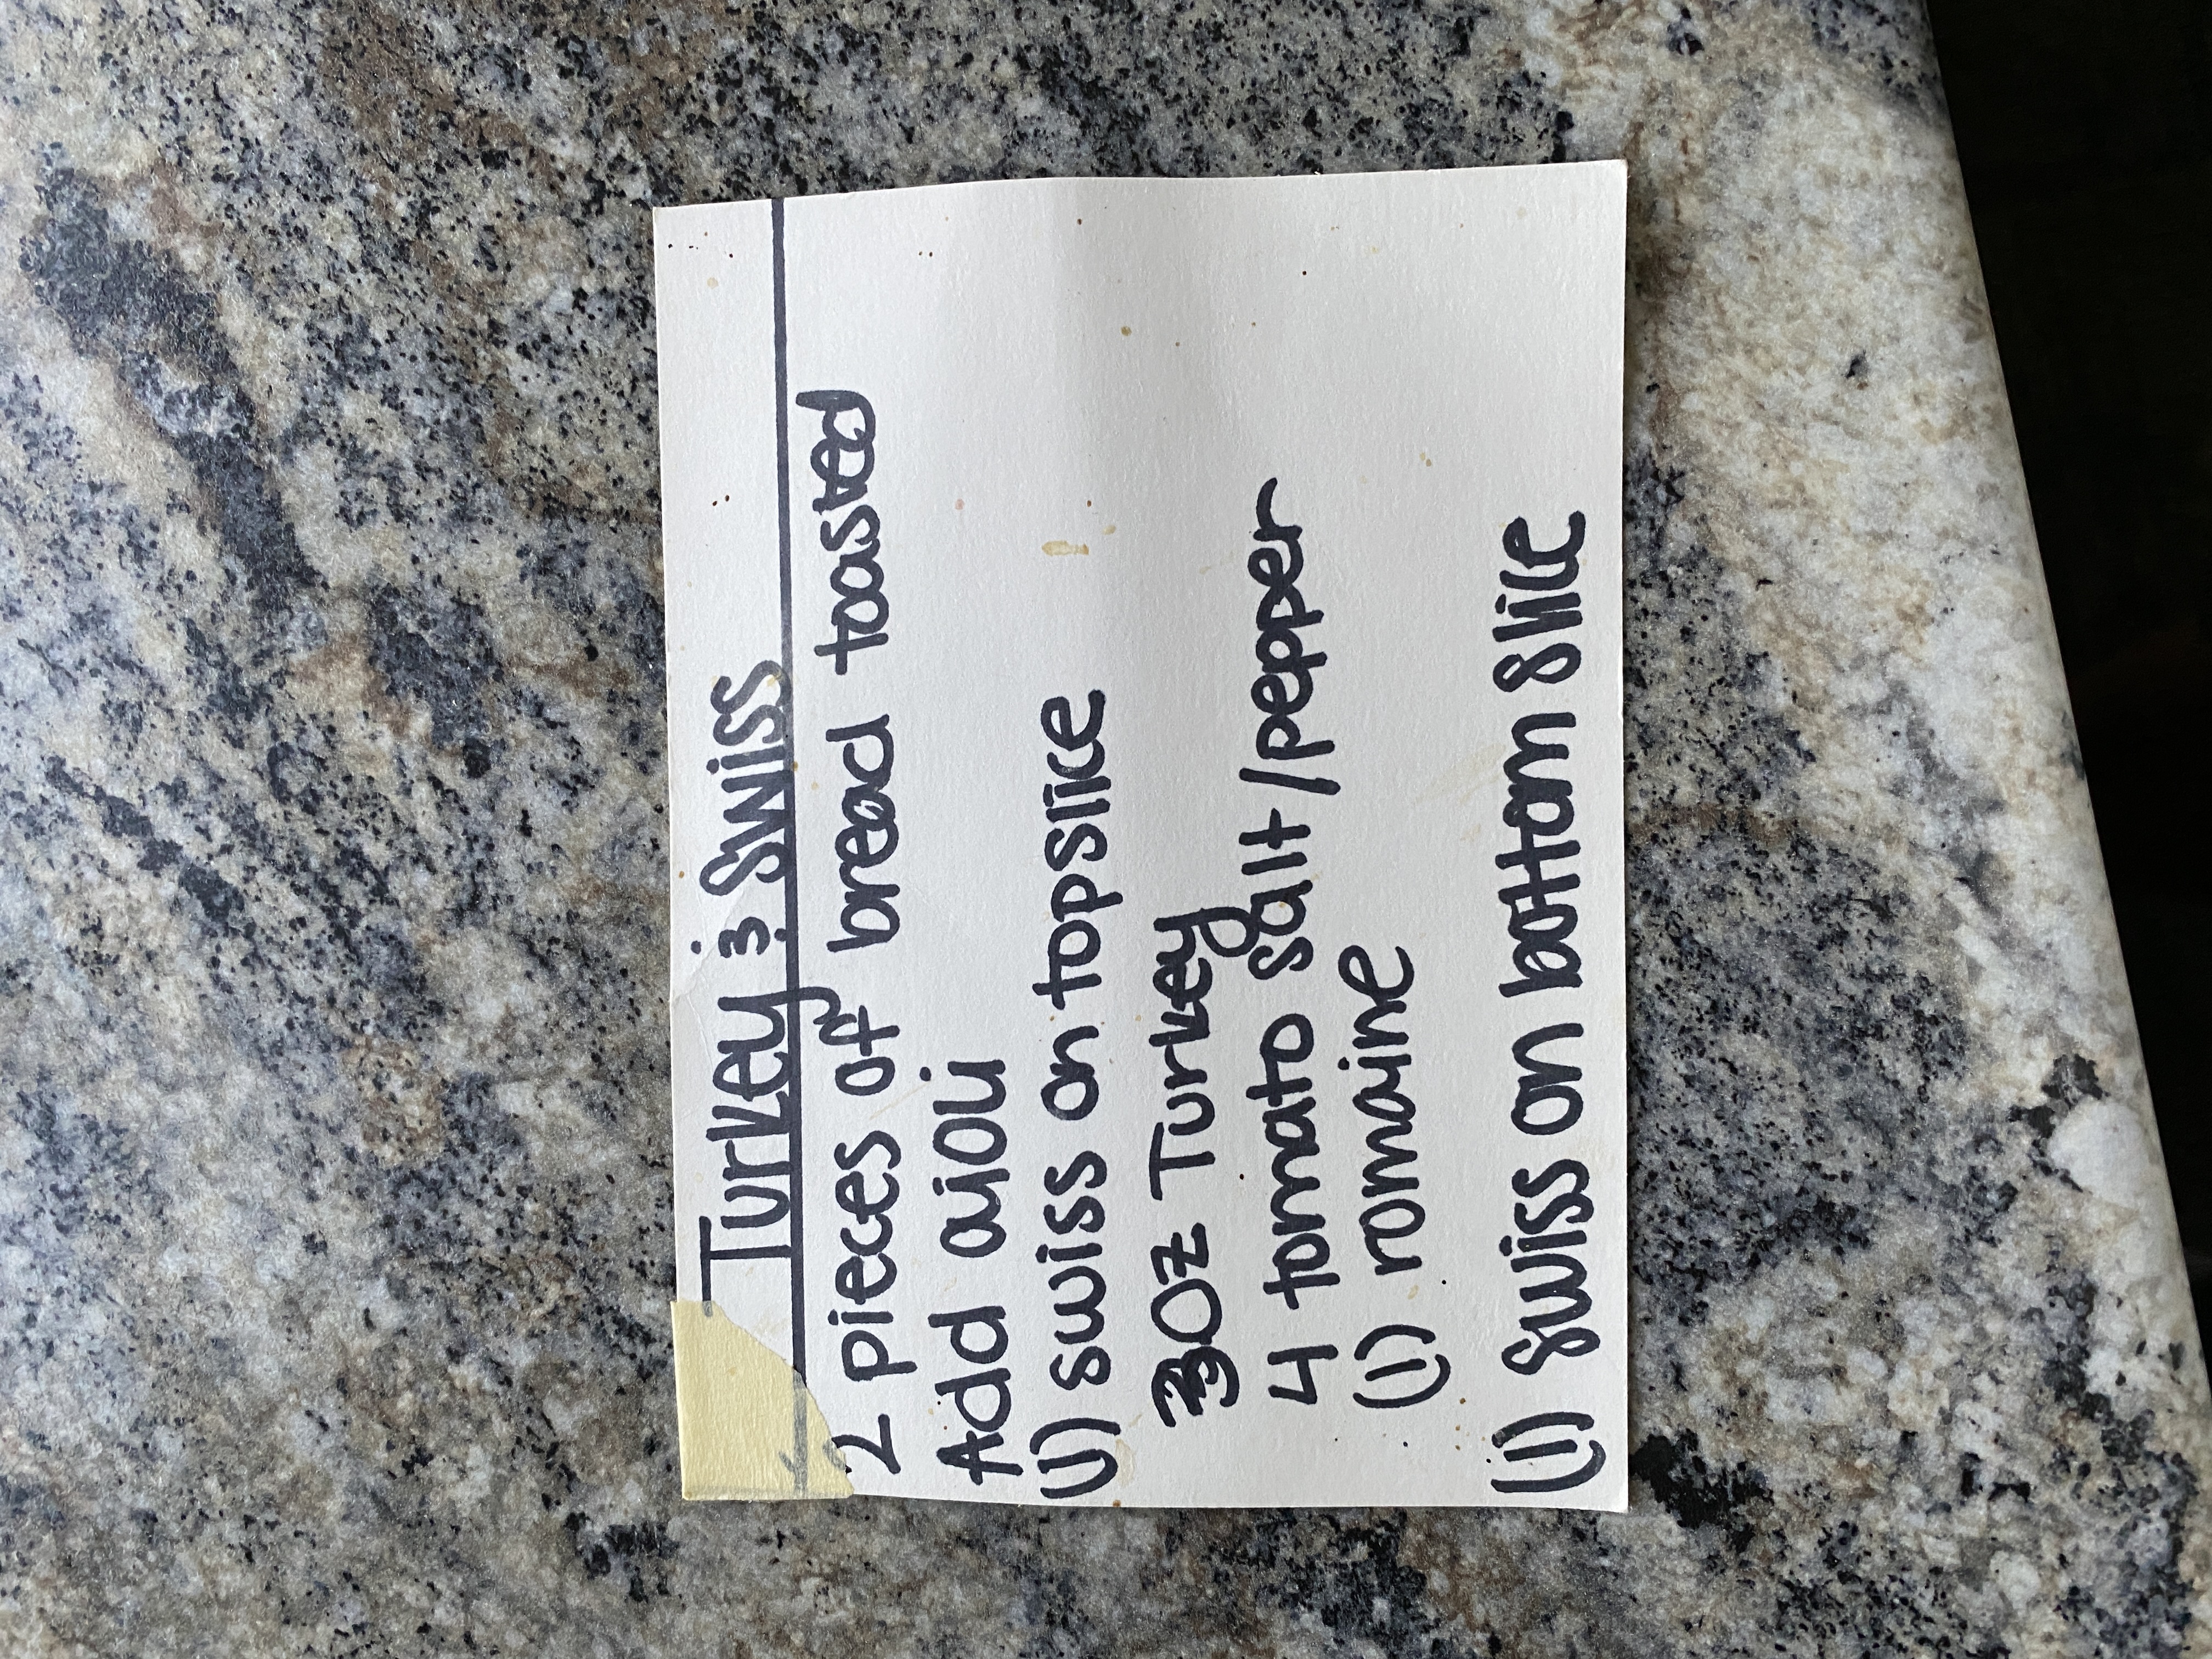 Turkey & Swiss
2 pieces of bread toasted
Add aioli
(1) swiss on topslice
3oz Turkey
4 tomato salt/pepper
(1) romaine
(1) swiss on bottom slice